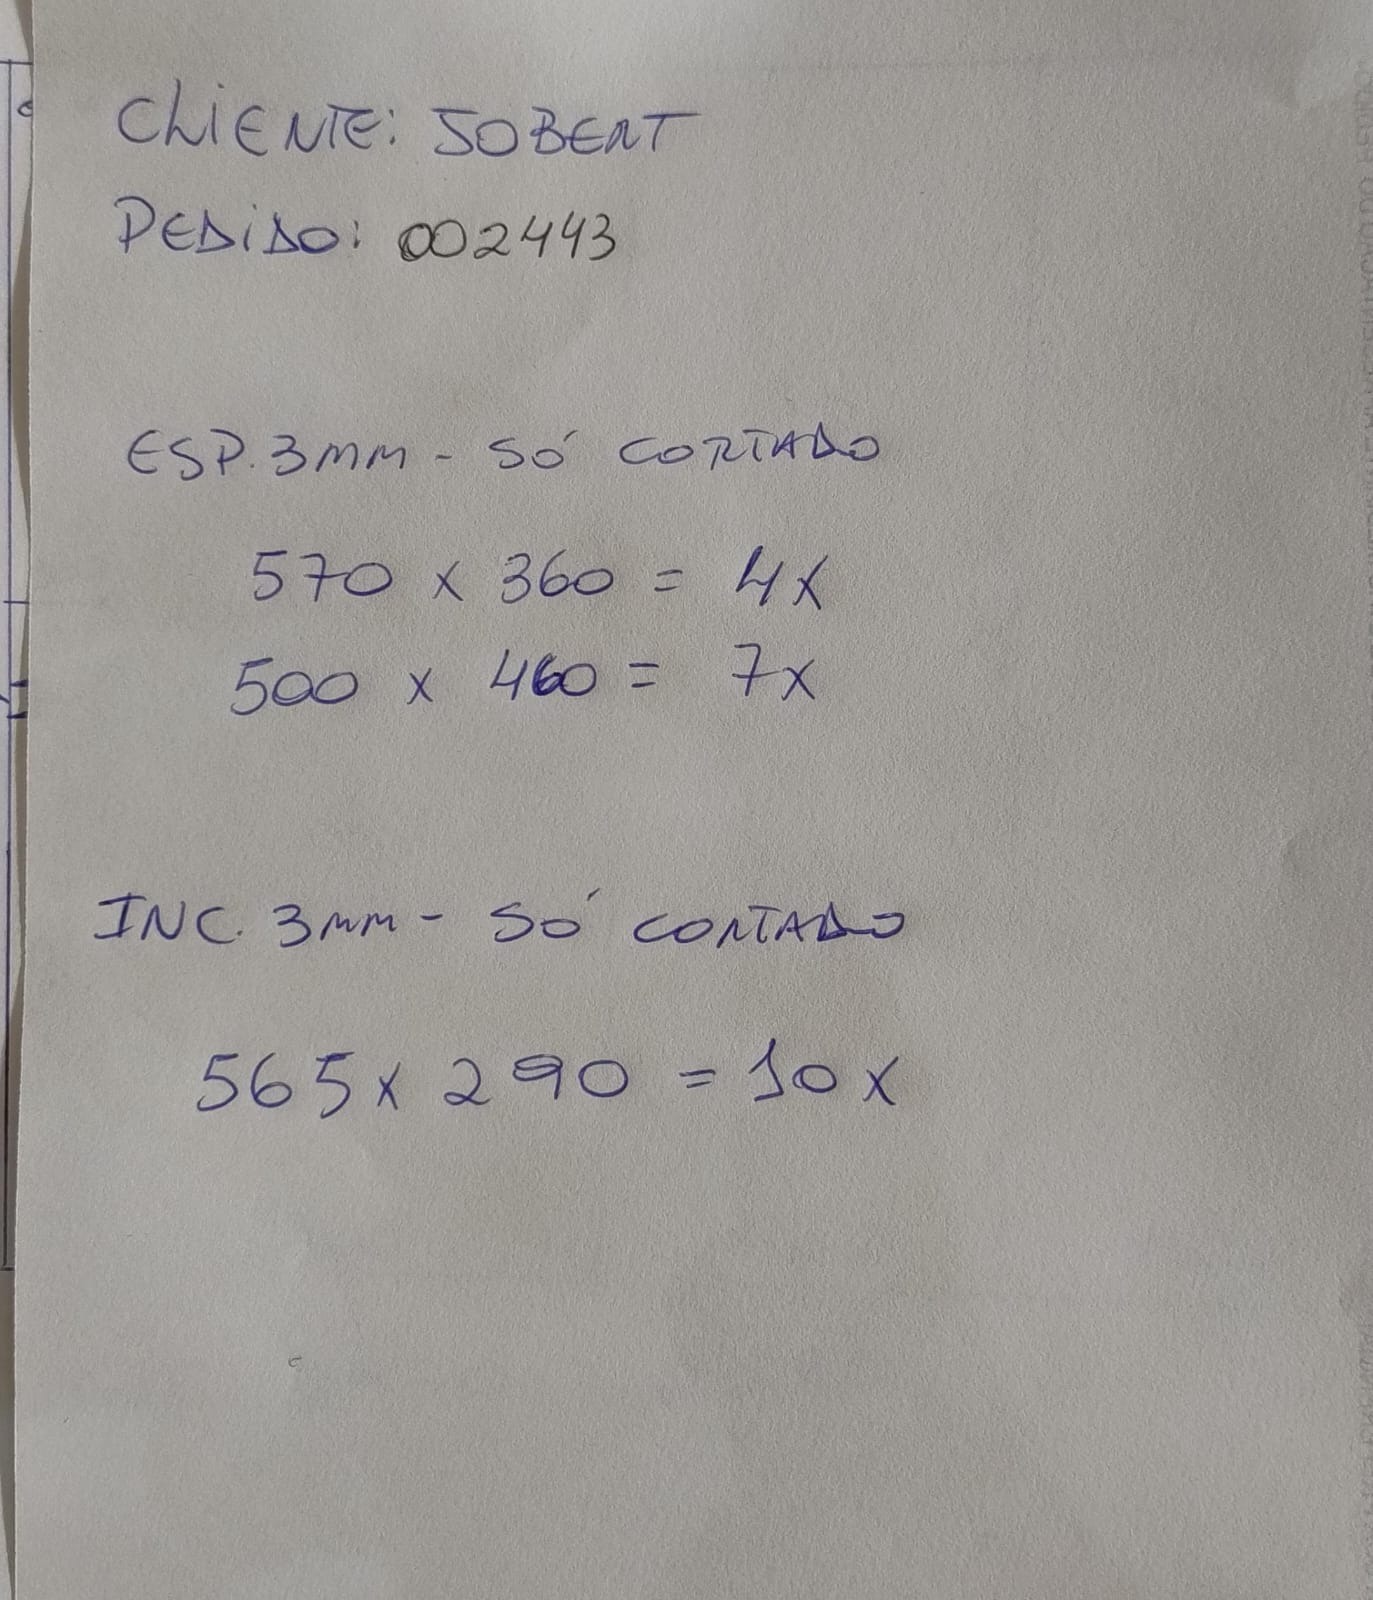 CLIENTE: JOBERT
PEDIDO: 002443
ESP. 3MM - SÓ CORTADO
570 x 360 = 4x
500 x 460 = 7x
INC. 3MM - SÓ CORTADO
565 x 290 = 10x